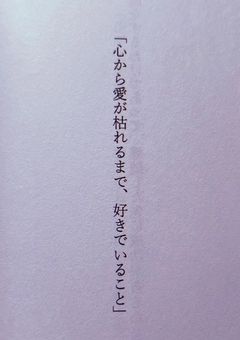 「心から愛が枯れるまで、好きでいること」